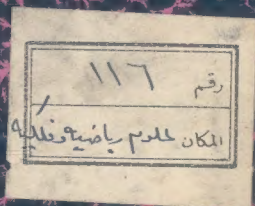 رقم ١١٦
المكان علوم رياضيه وفلكيه